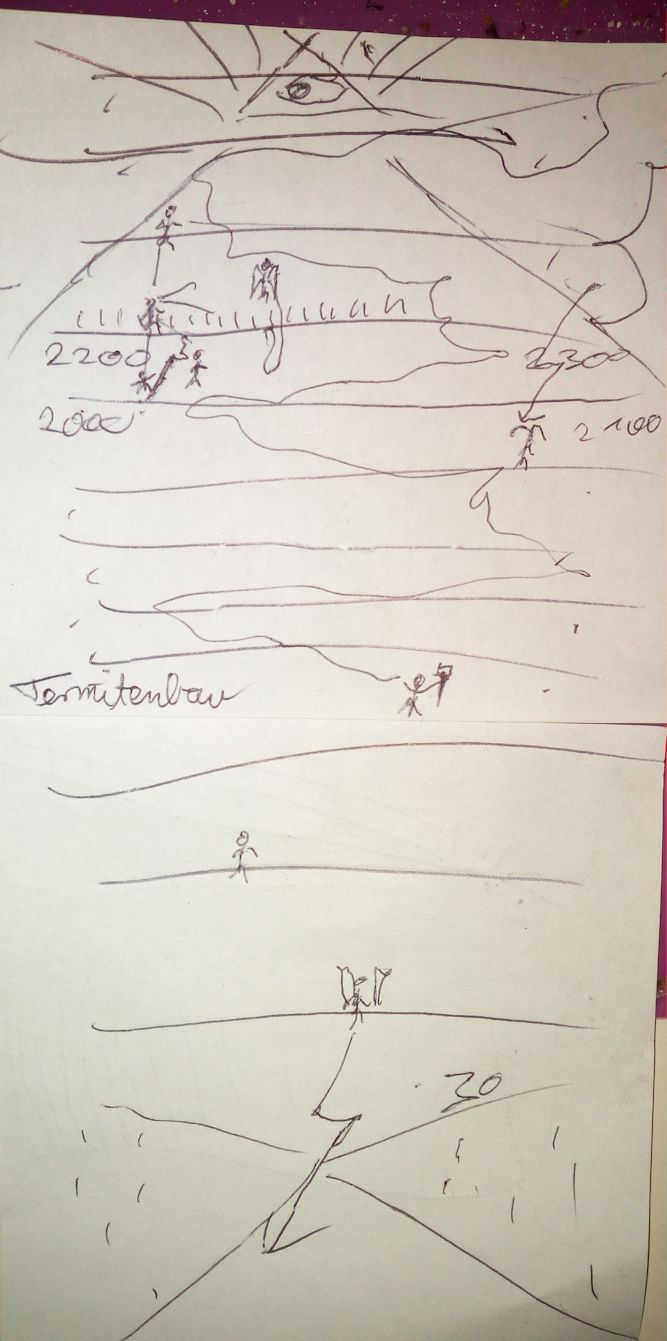 2200
2300
2000
2100
Termitenbau
30